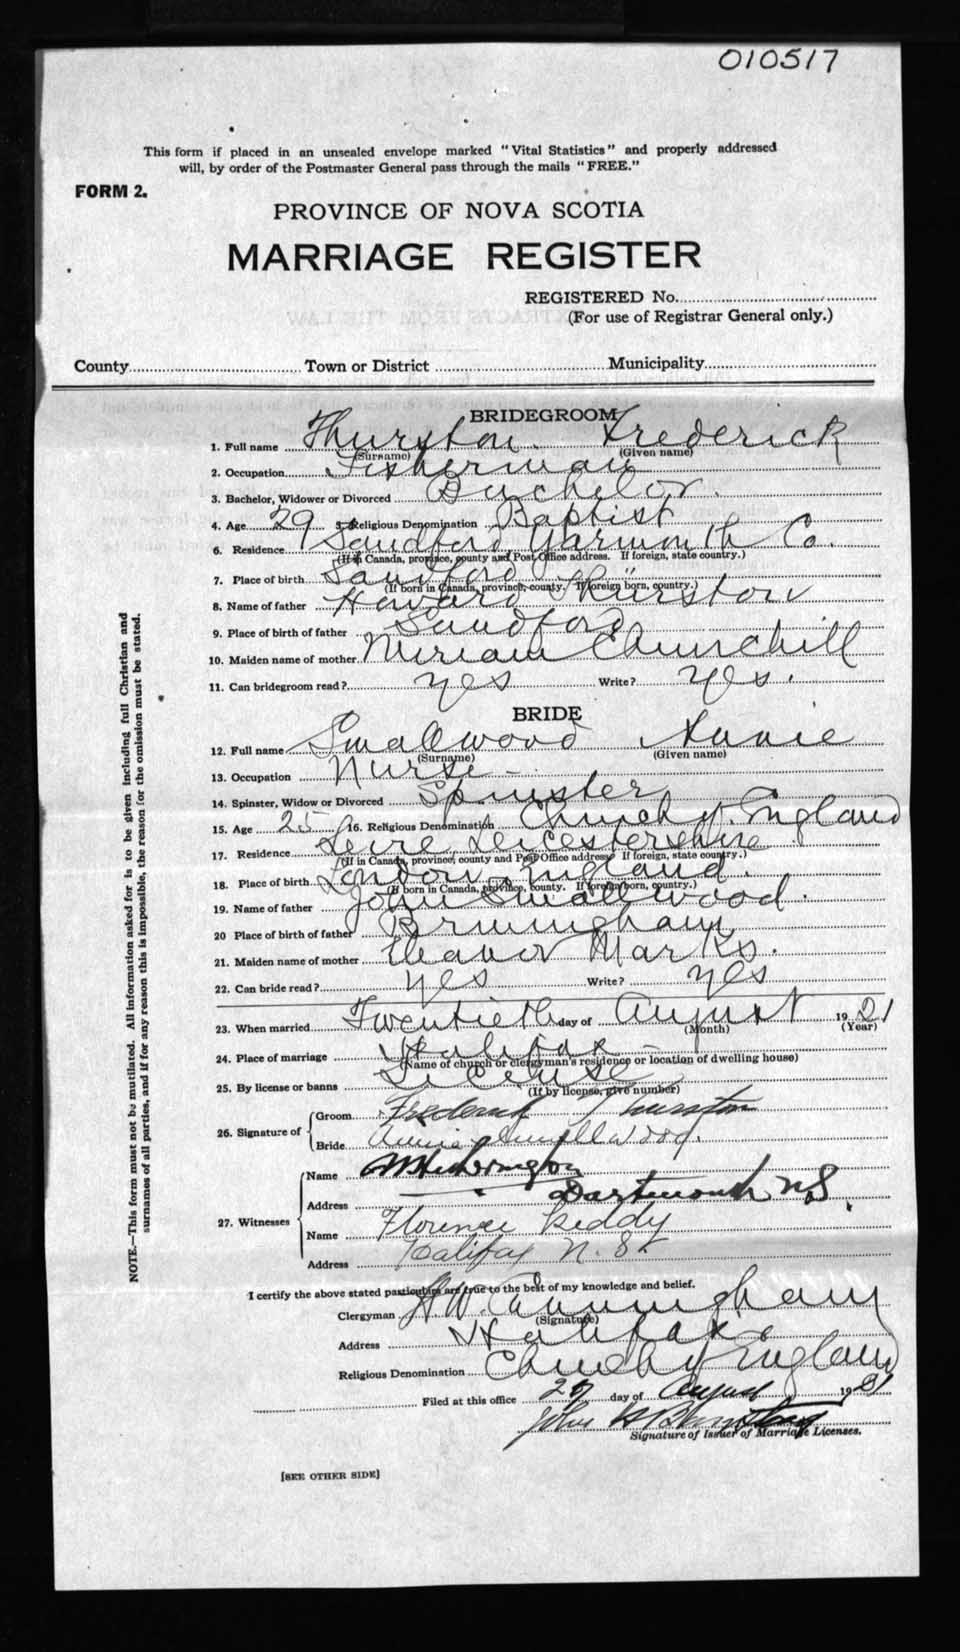 010517
This form if placed in an unsealed envelope marked "Vital Statistics" and properly addressed
will, by order of the Postmaster General pass through the mails "FREE."
FORM 2.
PROVINCE OF NOVA SCOTIA
MARRIAGE REGISTER
REGISTERED No.
(For use of Registrar General only.)
County Town or District Municipality
BRIDEGROOM
1. Full name Thurston Frederick
(Surname) (Given name)
2. Occupation Fisherman
3. Bachelor, Widower or Divorced Bachelor.
4. Age 29 5. Religious Denomination Baptist
6. Residence Sandford Yarmouth Co.
(If in Canada, province, county and Post Office address. If foreign, state country.)
7. Place of birth Sandford
(If born in Canada, province, county. If foreign born, country.)
8. Name of father Howard Thurston
9. Place of birth of father Sandford
10. Maiden name of mother Miriam Churchill
11. Can bridegroom read? yes Write? yes.
BRIDE
12. Full name Smallwood Annie
(Surname) (Given name)
13. Occupation Nurse -
14. Spinster, Widow or Divorced Spinster
15. Age 25 16. Religious Denomination Church of England
17. Residence Leire Leicestershire
(If in Canada, province, county and Post Office address If foreign, state country.)
18. Place of birth London England.
(If born in Canada, province, county. If foreign born, country.)
19. Name of father John Smallwood.
20 Place of birth of father Birmingham
21. Maiden name of mother Eleanor Marks.
22. Can bride read? yes Write? yes
23. When married Twentieth day of August 1921
(Month) (Year)
24. Place of marriage Halifax -
(Name of church or clergyman's residence or location of dwelling house)
25. By license or banns License
(If by license, give number)
26. Signature of
Groom Frederick Thurston
Bride Annie Smallwood.
27. Witnesses
Name
Address Dartmouth N.S.
Name Florence Leddy
Address Halifax N. S
I certify the above stated particulars are true to the best of my knowledge and belief.
Clergyman H.W. Cunningham
(Signature)
Address Halifax
Religious Denomination Church of England
Filed at this office 27 day of August 1921
John
Signature of Issuer of Marriage Licenses.
[SEE OTHER SIDE]
NOTE.—This form must not be mutilated. All information asked for is to be given including full Christian and
surnames of all parties, and if for any reason this is impossible, the reason for the omission must be stated.